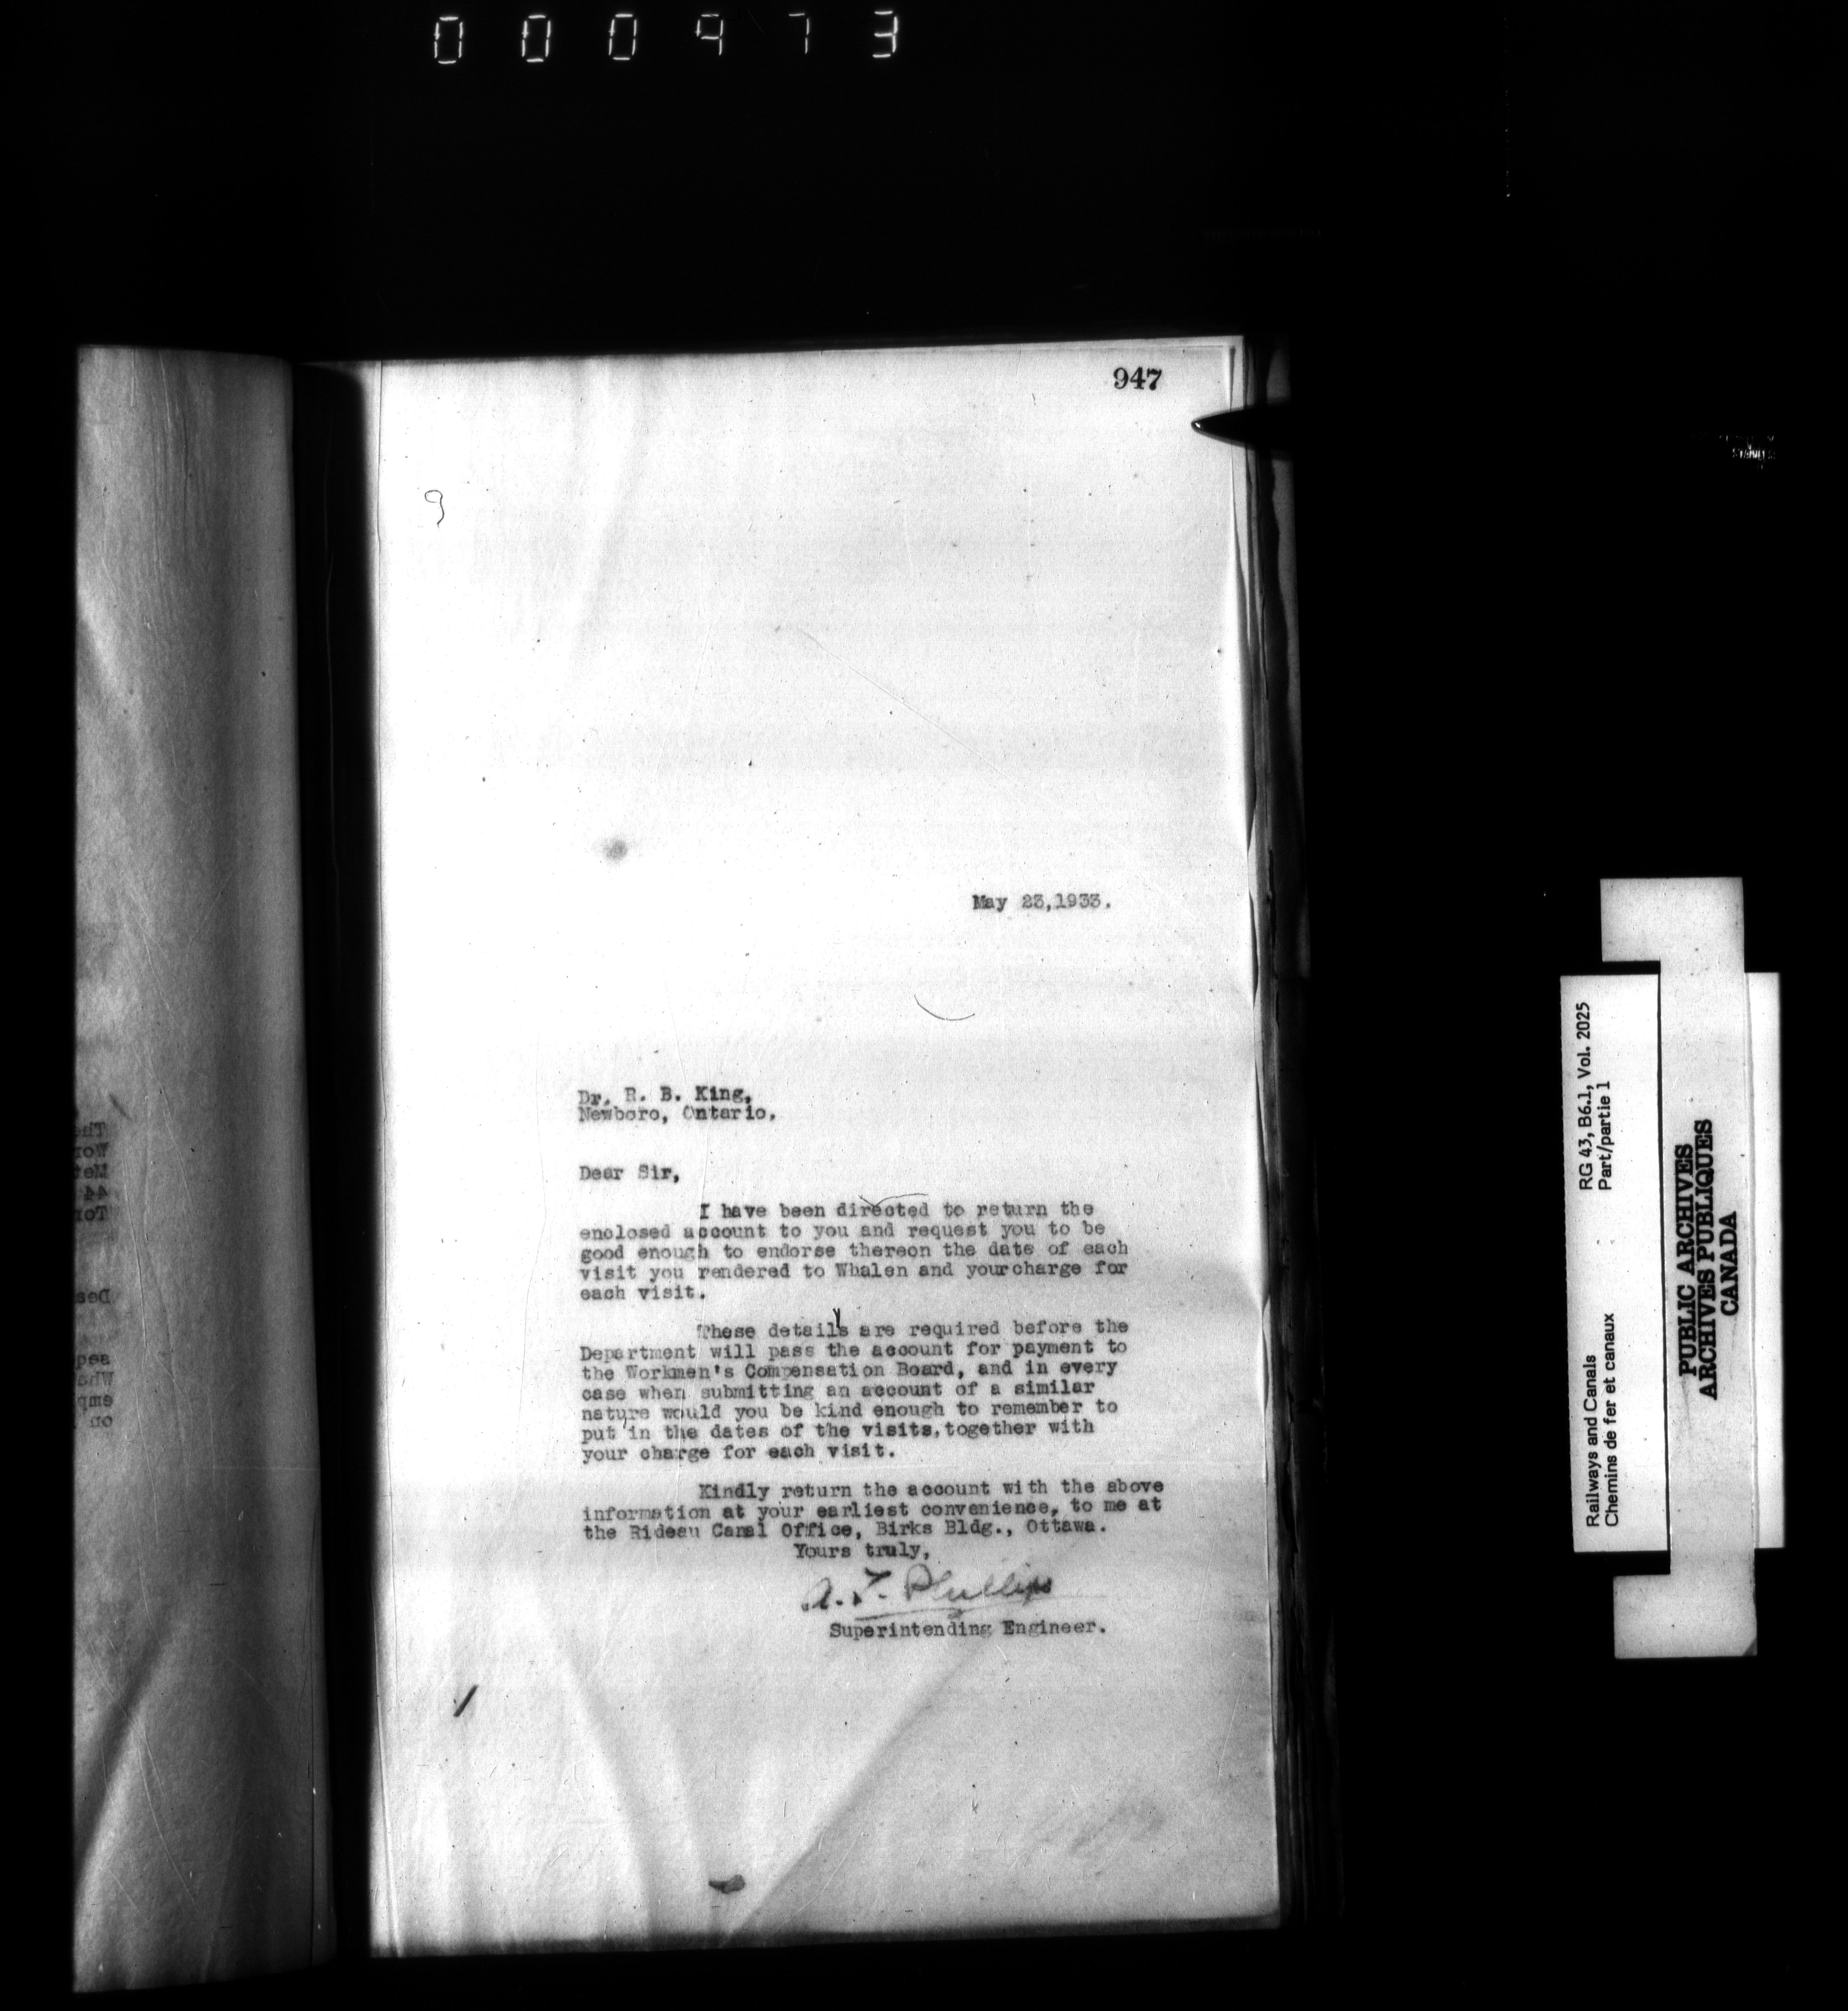 000973
947
May 23,1933.
Dr. R. B. King,
Newboro, Ontario.
Dear Sir,
I have been directed to return the
enclosed account to you and request you to be
good enough to endorse thereon the date of each
visit you rendered to Whalen and yourcharge for
each visit.
These details are required before the
Department will pass the account for payment to
the Workmen's Compensation Board, and in every
case when submitting an account of a similar
nature would you be kind enough to remember to
put in the dates of the visits,together with
your charge for each visit.
Kindly return the account with the above
information at your earliest convenience, to me at
the Rideau Canal Office, Birks Bldg., Ottawa.
Yours truly,
A. T. Phillips
Superintending Engineer.
RG 43, B6.1, Vol. 2025
Part/partie 1
Railways and Canals
Chemins de fer et canaux
PUBLIC ARCHIVES
ARCHIVES PUBLIQUES
CANADA